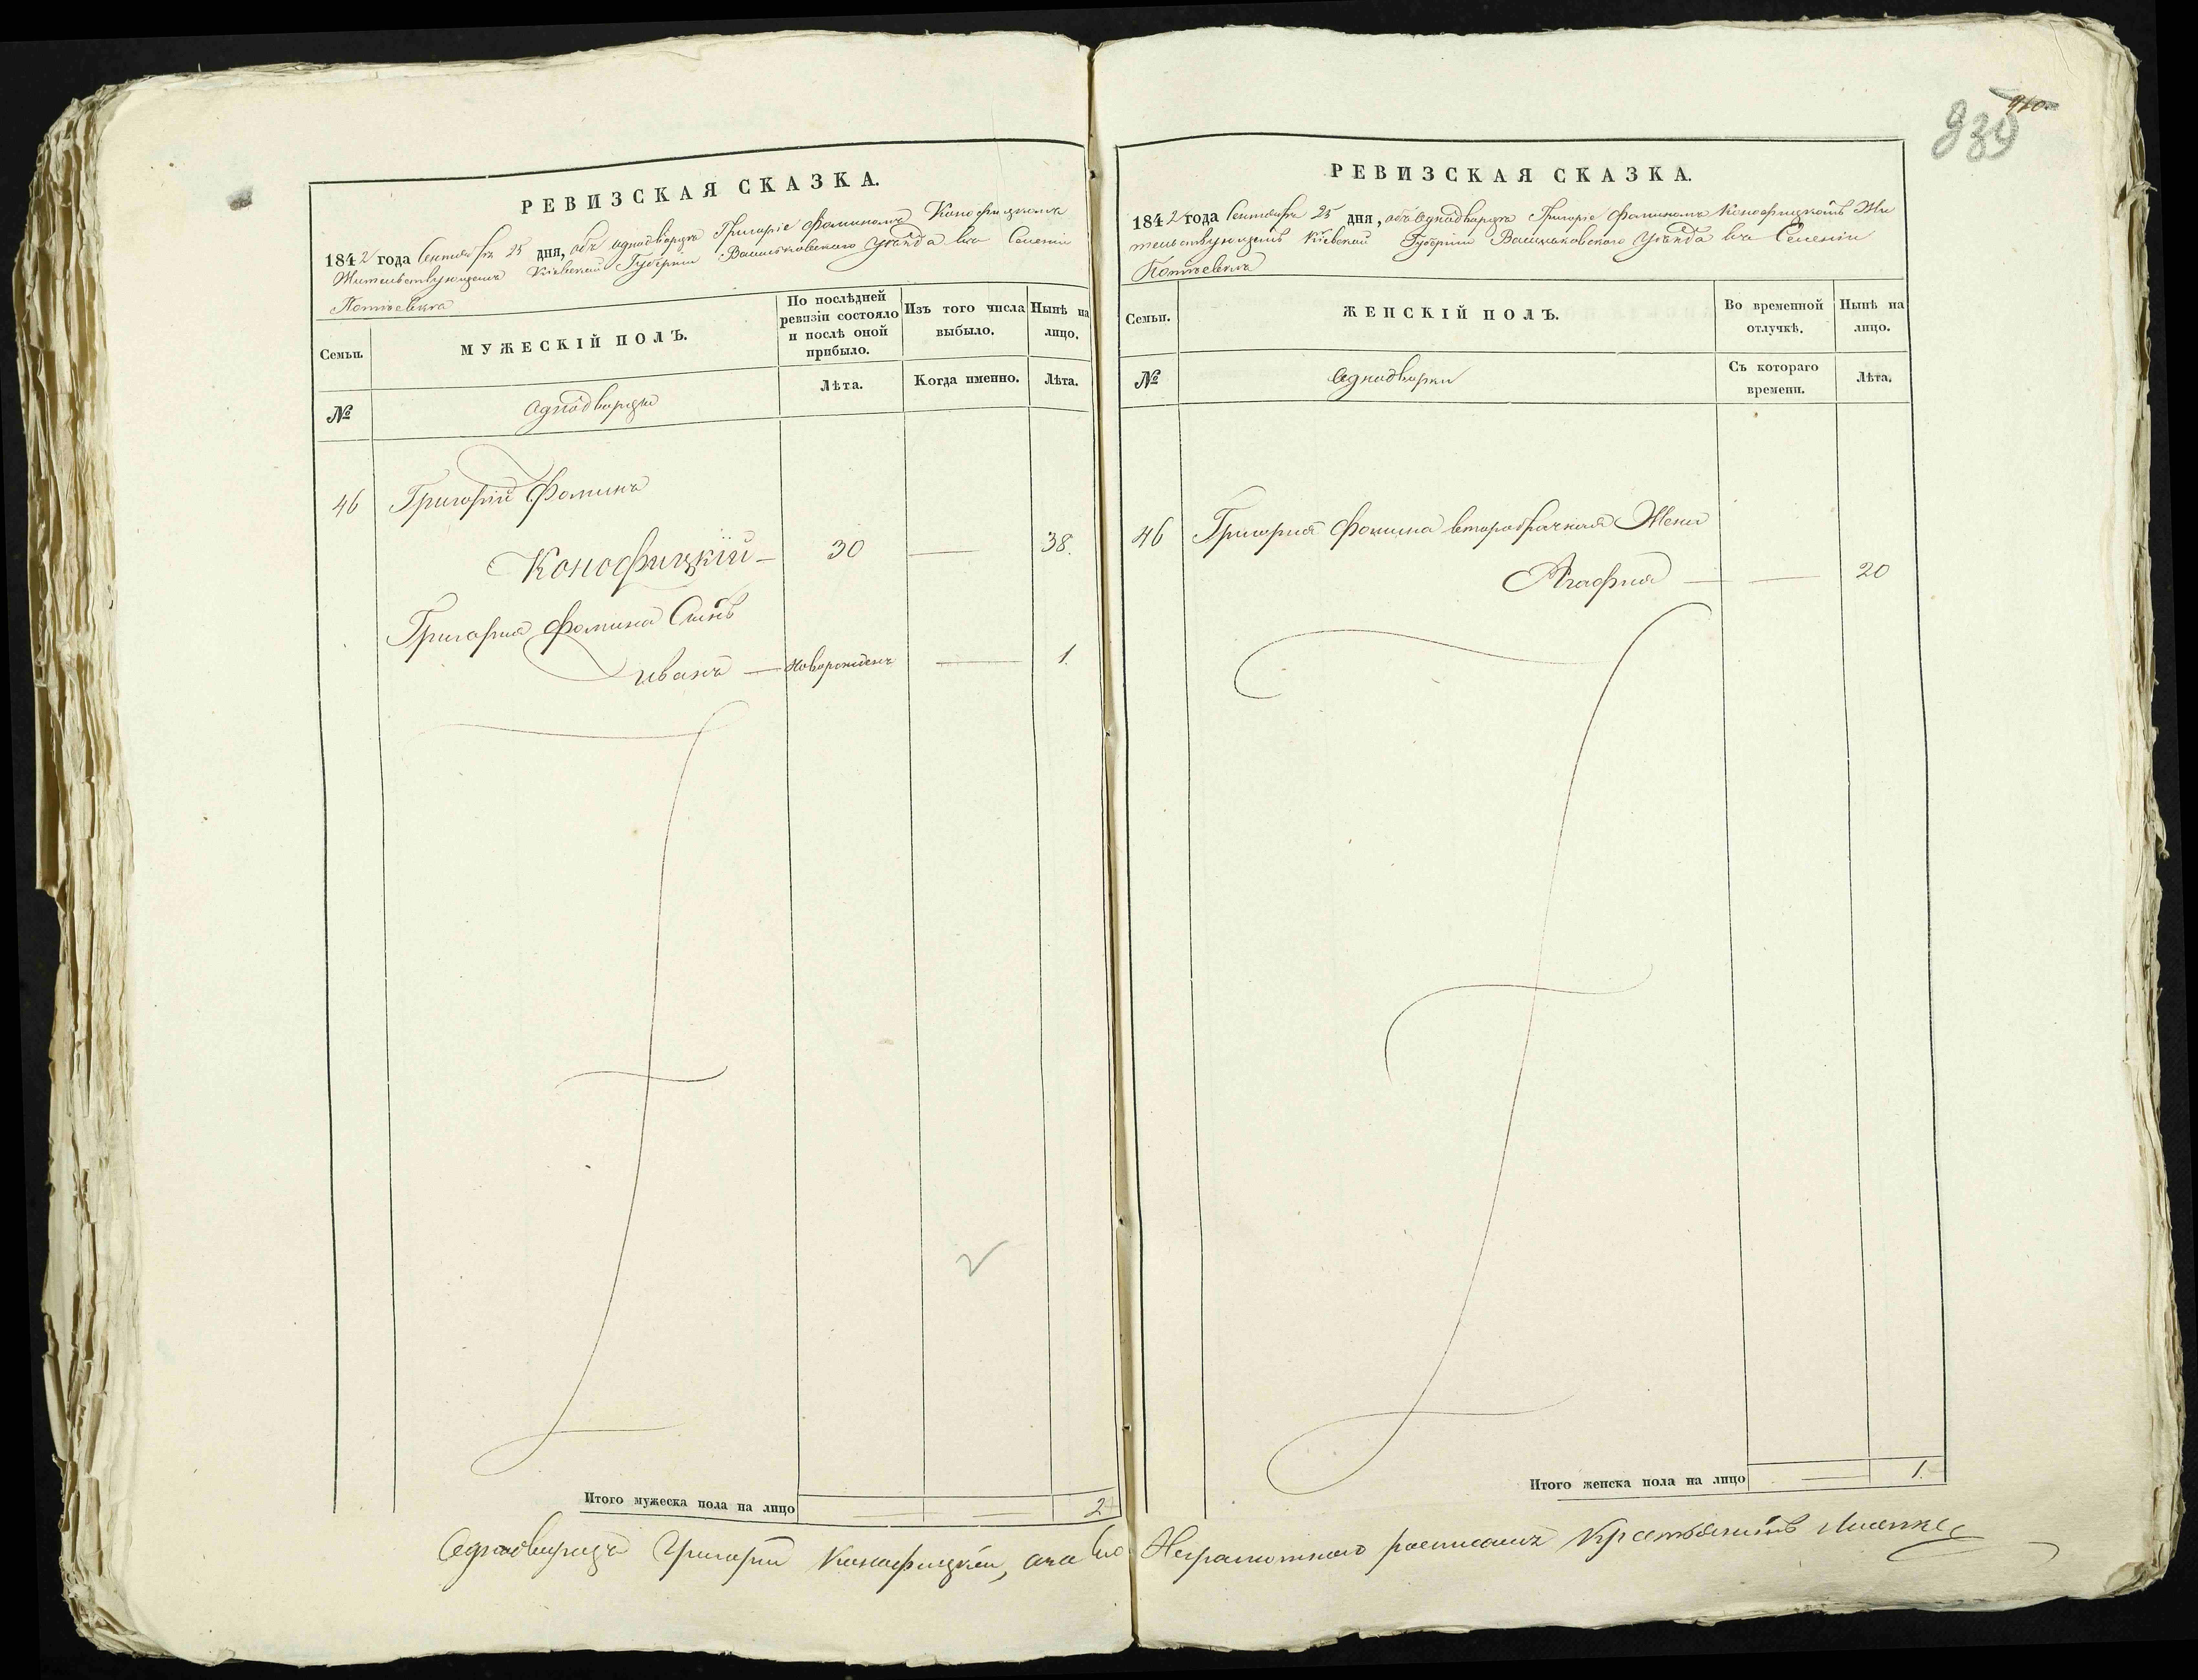 910
939
РЕВИЗСКАЯ СКАЗКА.
1842 года Сентября 25 дня, объ однодворцѣ Григоріе Фоминомъ Конофицкомъ
Жительствующемъ Кіевской Губерніи Васильковскаго Уѣзда въ Селеніи
Потіевка
Семьи. МУЖЕСКІЙ ПОЛЪ. По послѣдней ревизіи состояло и послѣ оной прибыло. Изъ того числа выбыло. Нынѣ на лицо.
№ Однодворцы Лѣта. Когда именно. Лѣта.
46 Григорій Фоминъ
Конофицкій — 30 — 38.
Григорія Фомина Сынъ
иванъ — Новорожденъ — 1.
Итого мужеска пола на лицо — — 2
РЕВИЗСКАЯ СКАЗКА.
1842 года Сентября 25 дня, объ Однодворцѣ Григоріе Фоминомъ Конофицкомъ Жи
тельствующемъ Кіевской Губерніи Васильковского Уѣзда въ Селеніи
Потіевкѣ
Семьи. ЖЕНСКІЙ ПОЛЪ. Во временной отлучкѣ. Нынѣ на лицо.
№ Однодворки Съ котораго времени. Лѣта.
46 Григорія Фомина второбрачная Жена
Агафия — — 20
Итого женска пола на лицо — 1.
Однодворецъ Григорій Конофицкій, а за его Неграмотного росписался